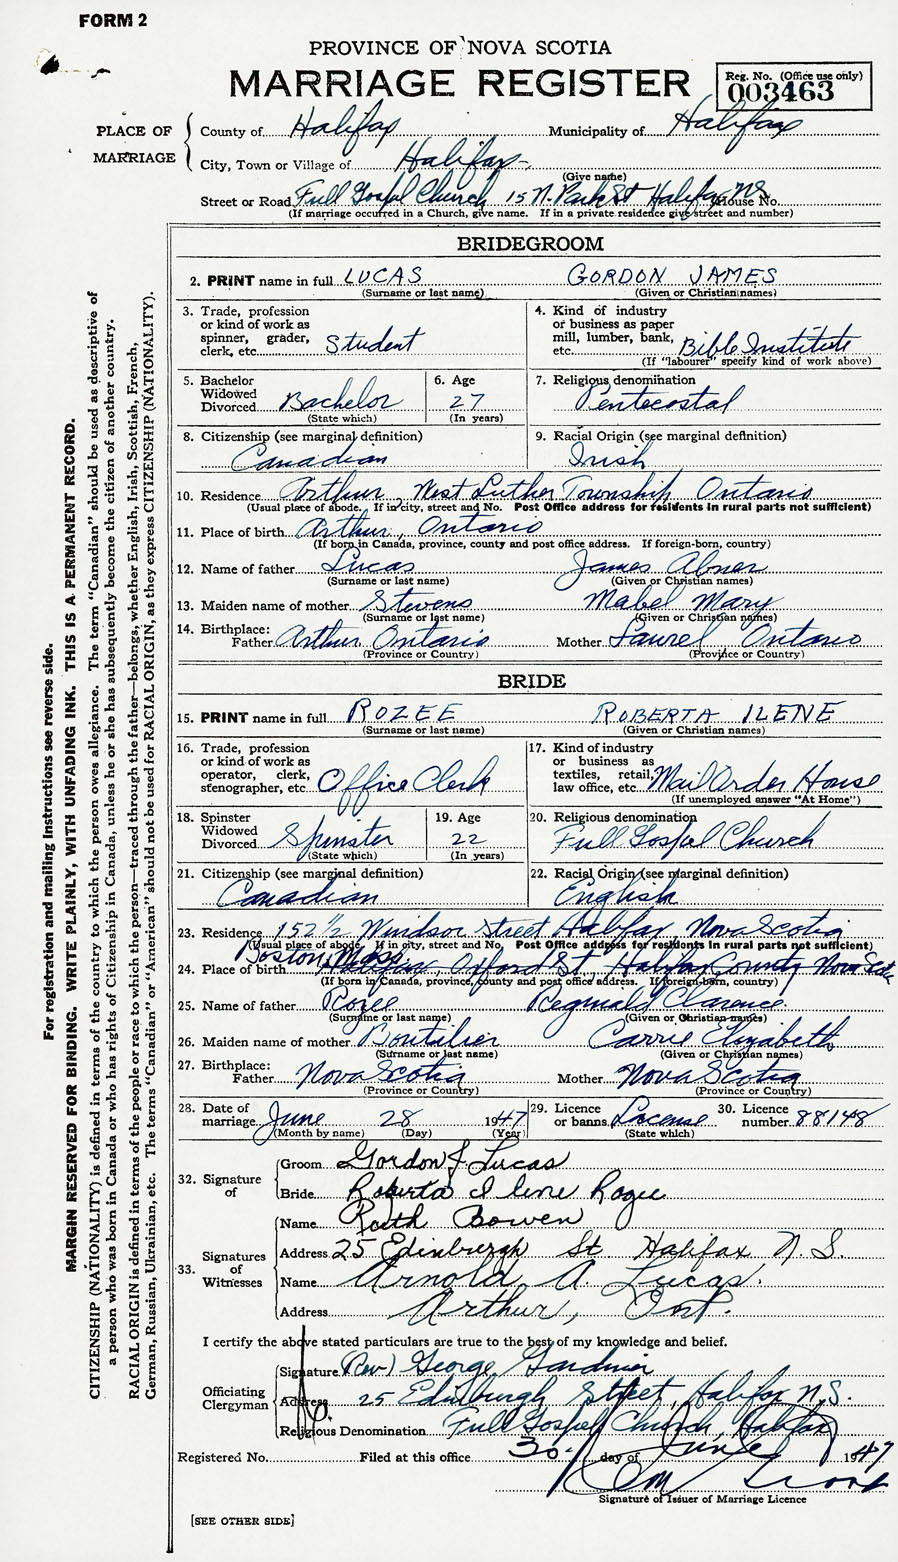 FORM 2
PROVINCE OF NOVA SCOTIA
MARRIAGE REGISTER
Reg. No. (Office use only)
003463
PLACE OF MARRIAGE
County of Halifax Municipality of Halifax
City, Town or Village of Halifax
(Give name)
Street or Road Full Gospel Church 15 N. Park St Halifax NS House No.
(If marriage occurred in a Church, give name. If in a private residence give street and number)
BRIDEGROOM
2. PRINT name in full LUCAS GORDON JAMES
(Surname or last name) (Given or Christian names)
3. Trade, profession or kind of work as spinner, grader, clerk, etc. Student
4. Kind of industry or business as paper mill, lumber, bank, etc. Bible Institute
(If "labourer" specify kind of work above)
5. Bachelor Widowed Divorced Bachelor
(State which)
6. Age 27
(In years)
7. Religious denomination
Pentecostal
8. Citizenship (see marginal definition)
Canadian
9. Racial Origin (see marginal definition)
Irish
10. Residence Arthur, West Luther Township Ontario
(Usual place of abode. If in city, street and No. Post Office address for residents in rural parts not sufficient)
11. Place of birth Arthur, Ontario
(If born in Canada, province, county and post office address. If foreign-born, country)
12. Name of father Lucas James Abner
(Surname or last name) (Given or Christian names)
13. Maiden name of mother Stevens Mabel Mary
(Surname or last name) (Given or Christian names)
14. Birthplace:
Father Arthur Ontario Mother Laurel Ontario
(Province or Country) (Province or Country)
BRIDE
15. PRINT name in full ROZEE ROBERTA ILENE
(Surname or last name) (Given or Christian names)
16. Trade, profession or kind of work as operator, clerk, stenographer, etc. Office Clerk
17. Kind of industry or business as textiles, retail, law office, etc. Mail Order House
(If unemployed answer "At Home")
18. Spinster Widowed Divorced Spinster
(State which)
19. Age 22
(In years)
20. Religious denomination
Full Gospel Church
21. Citizenship (see marginal definition)
Canadian
22. Racial Origin (see marginal definition)
English
23. Residence 152 1/2 Windsor Street Halifax, Nova Scotia
(Usual place of abode. If in city, street and No. Post Office address for residents in rural parts not sufficient)
Boston, Mass.
24. Place of birth Oxford St, Halifax County Nova Scotia
(If born in Canada, province, county and post office address. If foreign-born, country)
25. Name of father Rozee Reginald Clarence
(Surname or last name) (Given or Christian names)
26. Maiden name of mother Boutilier Carrie Elizabeth
(Surname or last name) (Given or Christian names)
27. Birthplace:
Father Nova Scotia Mother Nova Scotia
(Province or Country) (Province or Country)
28. Date of marriage June 28 1947
(Month by name) (Day) (Year)
29. Licence or banns License
(State which)
30. Licence number 88148
32. Signature of
Groom Gordon J. Lucas
Bride Roberta Ilene Rozee
33. Signatures of Witnesses
Name Ruth Bowen
Address 25 Edinburgh St Halifax N. S.
Name Arnold A. Lucas
Address Arthur, Ont.
I certify the above stated particulars are true to the best of my knowledge and belief.
Officiating Clergyman
Signature (Rev.) George Gardiner
Address 25 Edinburgh Street Halifax N.S.
Religious Denomination Full Gospel Church, Halifax
Registered No. Filed at this office 30 day of June 1947
Signature of Issuer of Marriage Licence
[SEE OTHER SIDE]
For registration and mailing instructions see reverse side.
MARGIN RESERVED FOR BINDING. WRITE PLAINLY, WITH UNFADING INK. THIS IS A PERMANENT RECORD.
CITIZENSHIP (NATIONALITY) is defined in terms of the country to which the person owes allegiance. The term "Canadian" should be used as descriptive of
a person who was born in Canada or who has rights of Citizenship in Canada, unless he or she has subsequently become the citizen of another country.
RACIAL ORIGIN is defined in terms of the people or race to which the person—traced through the father—belongs, whether English, Irish, Scottish, French,
German, Russian, Ukrainian, etc. The terms "Canadian" or "American" should not be used for RACIAL ORIGIN, as they express CITIZENSHIP (NATIONALITY).